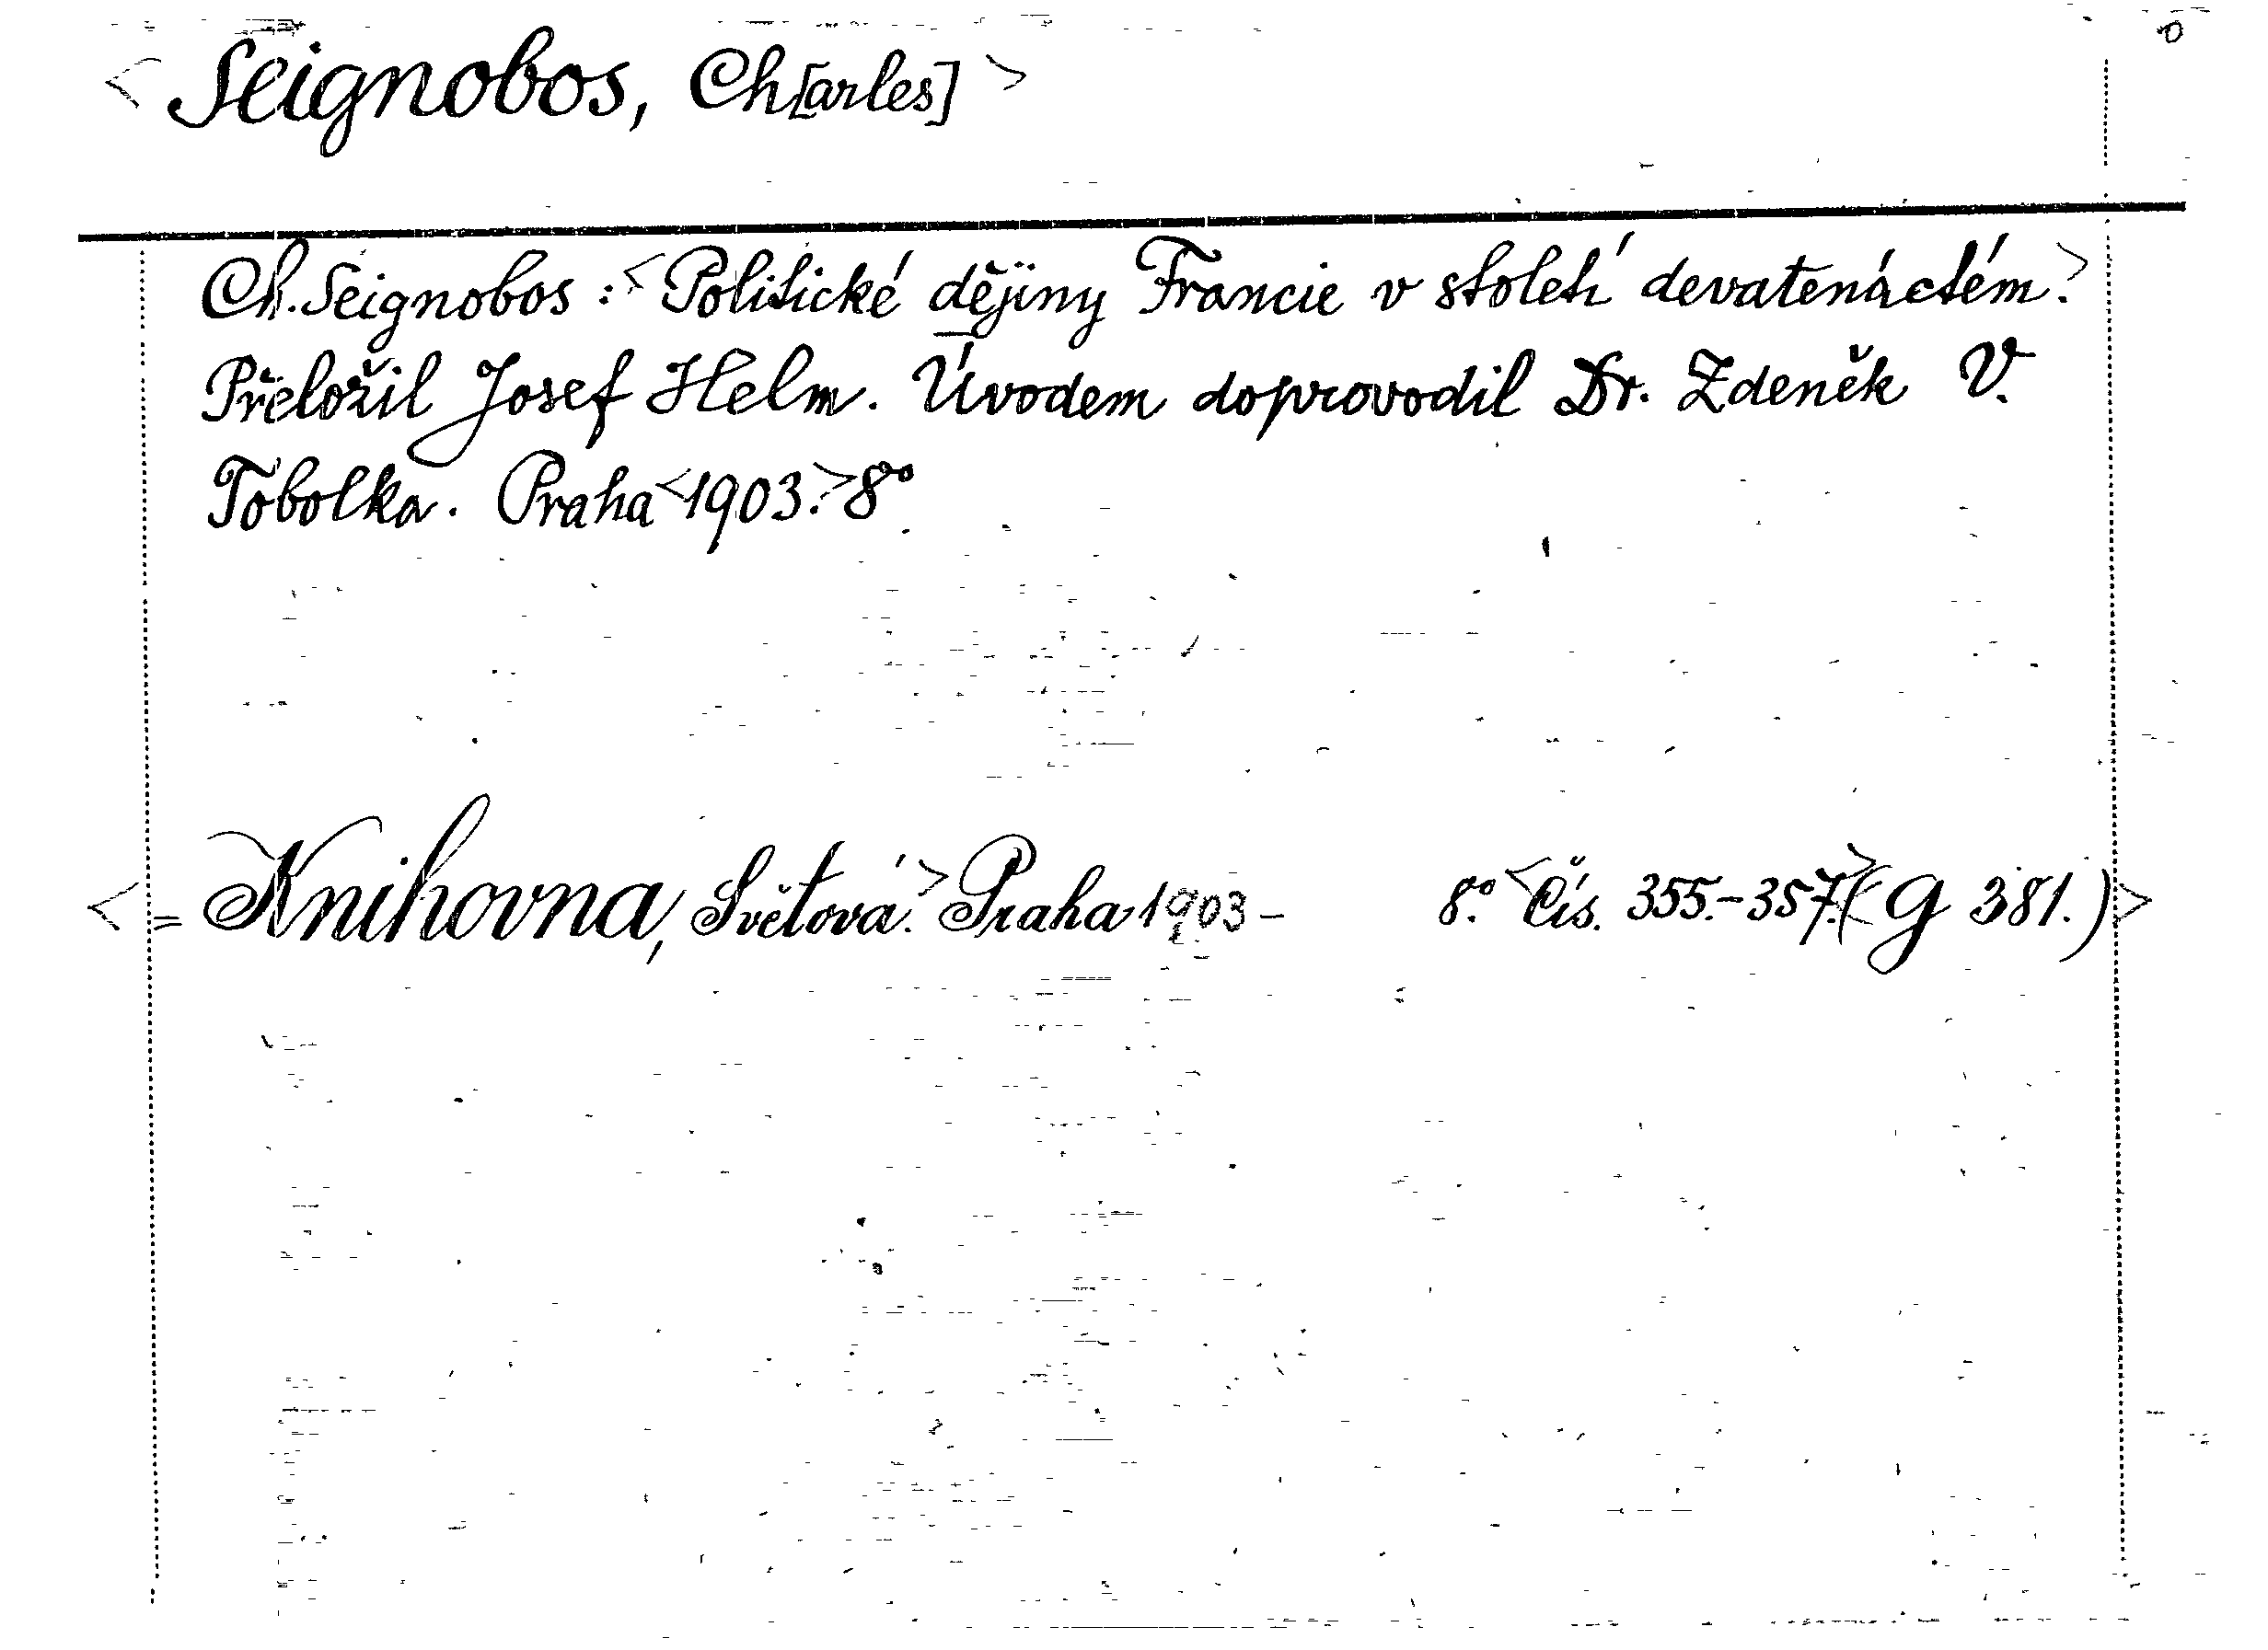 < Seignobos, Ch[arles] >
Ch. Seignobos : < Politické dějiny Francie v století devatenáctém. >
Přeložil Josef Helm. Úvodem doprovodil Dr. Zdeněk V.
Tobolka. Praha < 1903. > 8°
< = Knihovna, Světová. > Praha 1903 - 8.° < Čís. 355.-357. > ( G 381. ) >